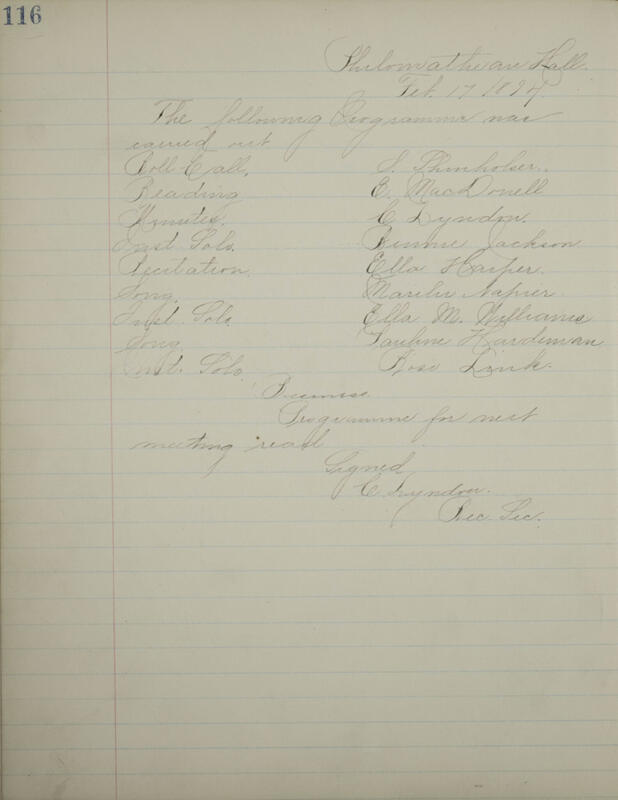 116
Philomathean Hall.
Feb. 17 1894
The following Programme was
carried out
Roll Call. S. Shinholser.
Reading E. MacDonell
Minutes. C Lyndon.
Inst Solo. Jackson
Recitation. Ella Harper.
Song. Napier
Inst. Solo. Ella M. Williams
Song Pauline Hardeman
Inst. Solo Rose Link.
Business
Programme for next
meeting read
Signed
C Lyndon.
Rec. Sec.